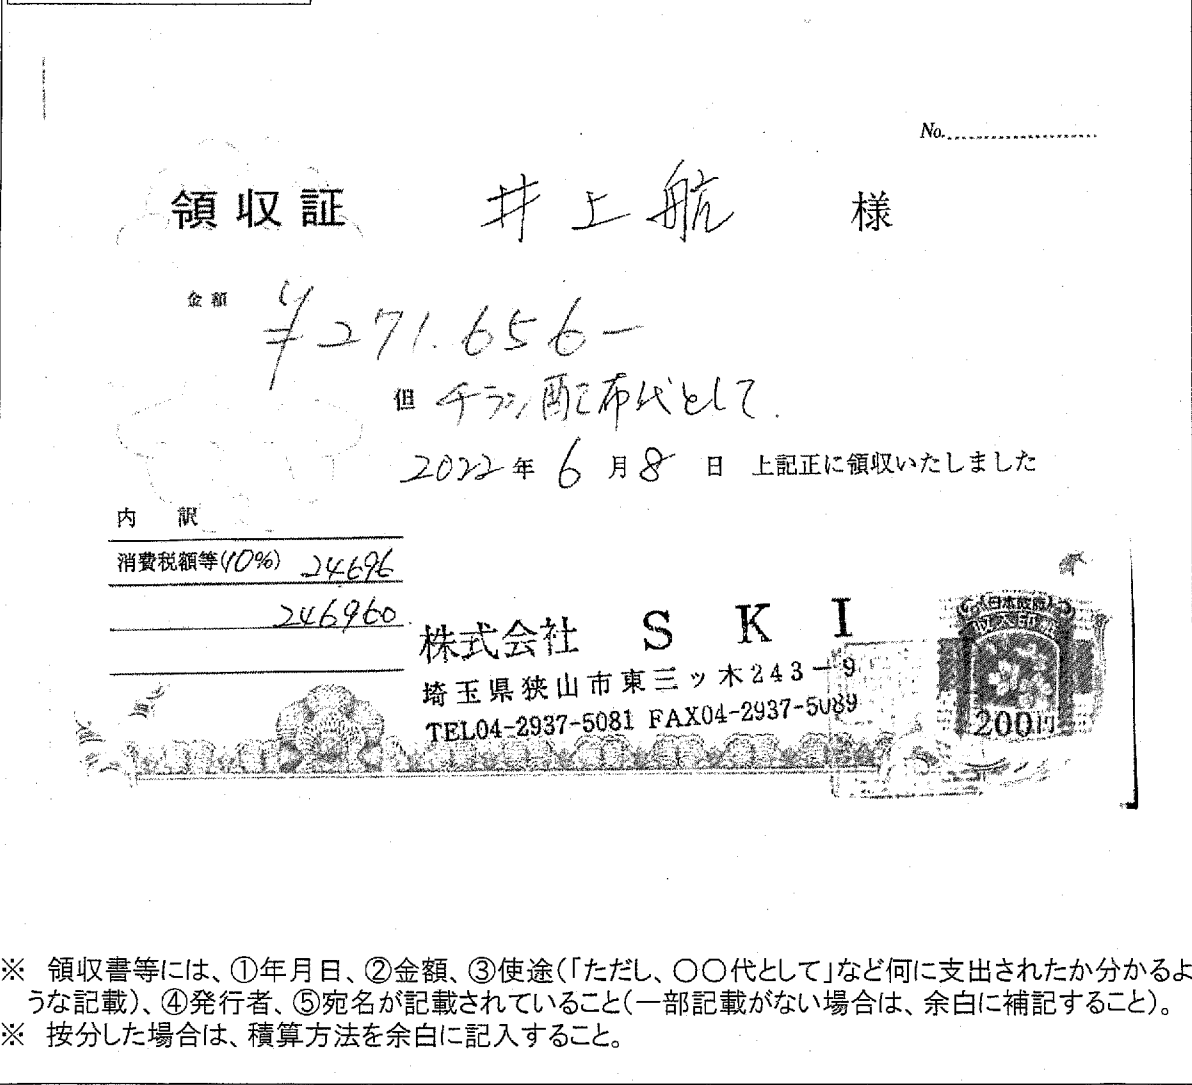 No.
領収証 井上航 様
金額 ¥271.656-
但 チラシ配布代として.
2022年6月8日 上記正に領収いたしました
内訳
消費税額等(10%) 24696
246960
株式会社 SKI
埼玉県狭山市東三ッ木243-9
TEL04-2937-5081 FAX04-2937-5089
日本政府
収入印紙
200円
※ 領収書等には、①年月日、②金額、③使途(「ただし、○○代として」など何に支出されたか分かるよ
うな記載)、④発行者、⑤宛名が記載されていること(一部記載がない場合は、余白に補記すること)。
※ 按分した場合は、積算方法を余白に記入すること。